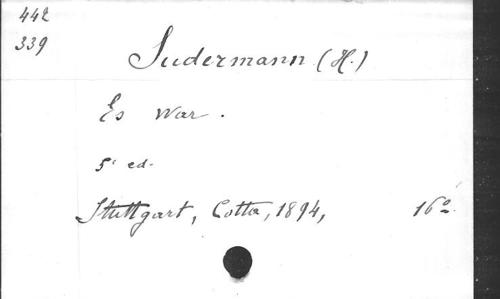 442
339
Sudermann (H.)
Es war.
5ª ed.
Stuttgart, Cotta, 1894, 16º.